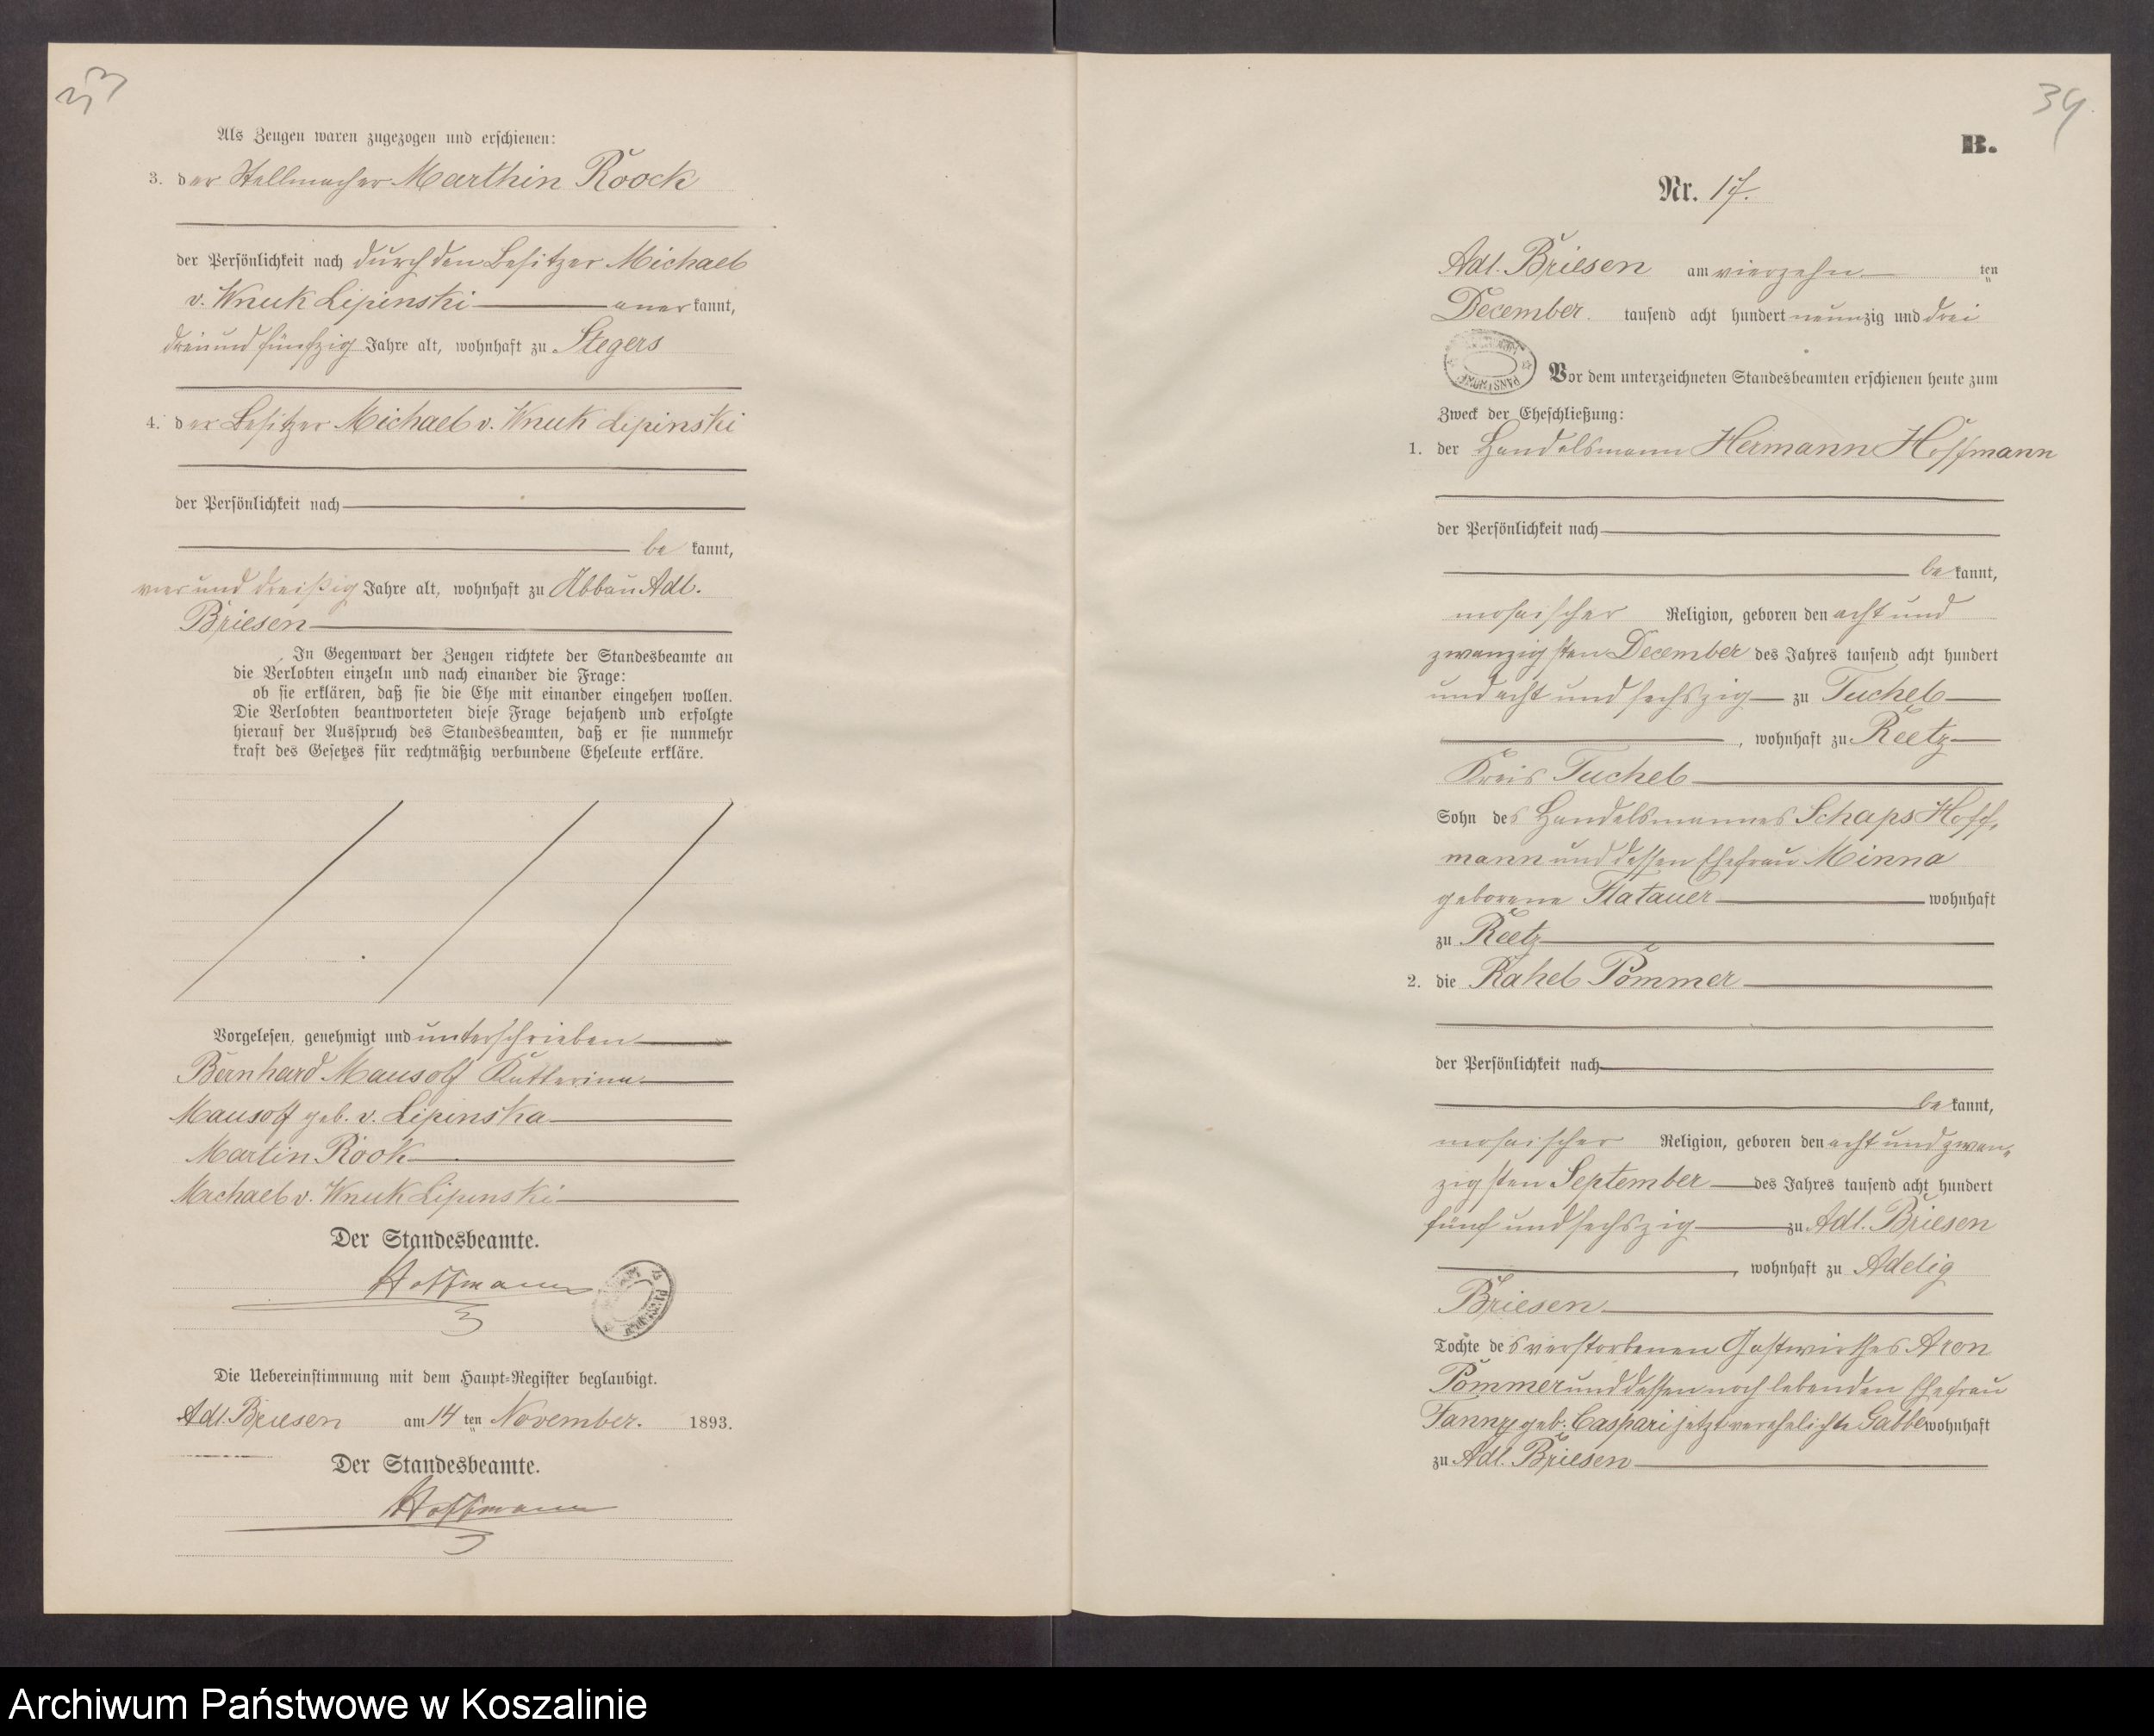 Als Zeugen waren zugezogen und erschienen:
3. der Stellmacher Marthin Roock
der Persönlichkeit nach durch den Besitzer Michael
v. Wnuk Lipinski anerkannt,
dreiundfünfzig Jahre alt, wohnhaft zu Stegers
4. der Besitzer Michael v. Wnuk Lipinski
der Persönlichkeit nach
bekannt,
vierunddreißig Jahre alt, wohnhaft zu Abbau Adl.
Briesen
In Gegenwart der Zeugen richtete der Standesbeamte an
die Verlobten einzeln und nach einander die Frage:
ob sie erklären, daß sie die Ehe mit einander eingehen wollen.
Die Verlobten beantworteten diese Frage bejahend und erfolgte
hierauf der Ausspruch des Standesbeamten, daß er sie nunmehr
kraft des Gesetzes für rechtmäßig verbundene Eheleute erkläre.
Vorgelesen, genehmigt und unterschrieben
Bernhard Mausolf Katterina
Mausolf geb. v. Lipinska
Martin Rook
Michael v. Wnuk Lipinski
Der Standesbeamte.
Hoffmann
Die Uebereinstimmung mit dem Haupt-Register beglaubigt.
Adl. Briesen am 14ten November. 1893.
Der Standesbeamte.
Hoffmann
34
B.
Nr. 17.
Adl. Briesen am vierzehnten
December. tausend acht hundert neunzig und drei
Vor dem unterzeichneten Standesbeamten erschienen heute zum
Zweck der Eheschließung:
1. der Handelsmann Hermann Hoffmann
der Persönlichkeit nach
bekannt,
mosaischer Religion, geboren den acht und
zwanzigsten December des Jahres tausend acht hundert
und acht und sechszig zu Tuchel
, wohnhaft zu Reetz
Kreis Tuchel
Sohn des Handelsmannes Schaps Hoff,
mann und dessen Ehefrau Minna
geborene Flatauer wohnhaft
zu Reetz
2. die Rahel Pommer
der Persönlichkeit nach
bekannt,
mosaischer Religion, geboren den acht und zwan„
zigsten September des Jahres tausend acht hundert
fünf und sechszig zu Adl. Briesen
, wohnhaft zu Adelig
Briesen
Tochte des verstorbenen Gastwirthes Aron
Pommer und dessen noch lebenden Ehefrau
Fanny geb. Caspari jetzt verehelichte Gabbe wohnhaft
zu Adl. Briesen
Archiwum Państwowe w Koszalinie